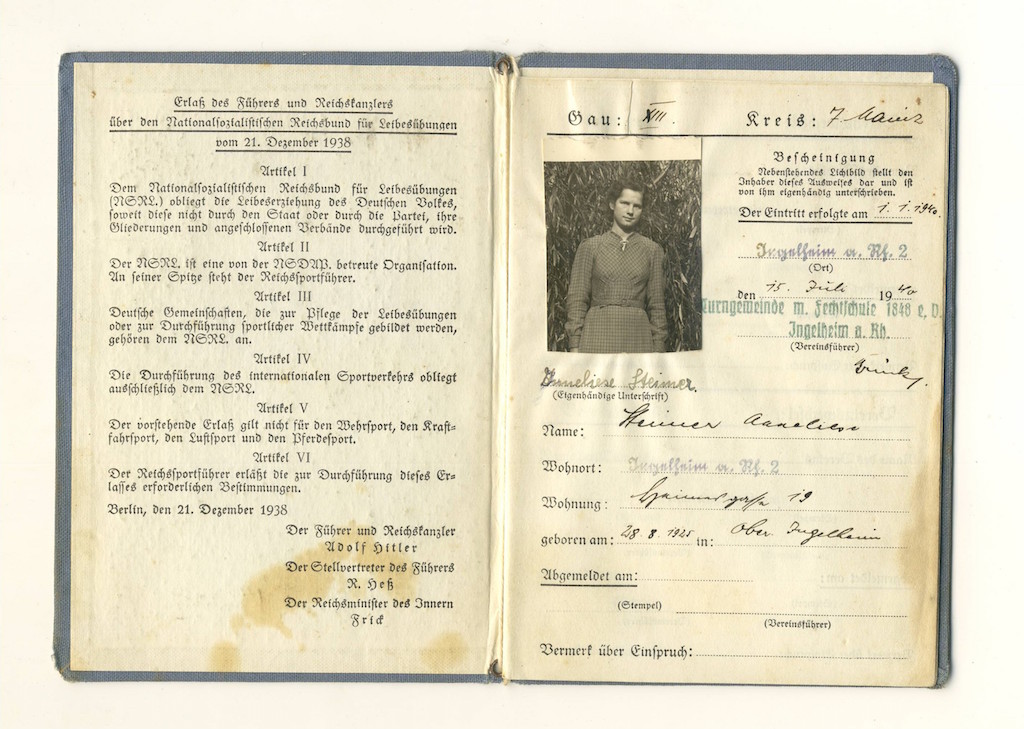 Erlaß des Führers und Reichskanzlers
über den Nationalsozialistischen Reichsbund für Leibesübungen
vom 21. Dezember 1938
Artikel I
Dem Nationalsozialistischen Reichsbund für Leibesübungen
(NSRL.) obliegt die Leibeserziehung des Deutschen Volkes,
soweit diese nicht durch den Staat oder durch die Partei, ihre
Gliederungen und angeschlossenen Verbände durchgeführt wird.
Artikel II
Der NSRL. ist eine von der NSDAP. betreute Organisation.
An seiner Spitze steht der Reichssportführer.
Artikel III
Deutsche Gemeinschaften, die zur Pflege der Leibesübungen
oder zur Durchführung sportlicher Wettkämpfe gebildet werden,
gehören dem NSRL. an.
Artikel IV
Die Durchführung des internationalen Sportverkehrs obliegt
ausschließlich dem NSRL.
Artikel V
Der vorstehende Erlaß gilt nicht für den Wehrsport, den Kraft-
fahrsport, den Luftsport und den Pferdesport.
Artikel VI
Der Reichssportführer erläßt die zur Durchführung dieses Er-
lasses erforderlichen Bestimmungen.
Berlin, den 21. Dezember 1938
Der Führer und Reichskanzler
Adolf Hitler
Der Stellvertreter des Führers
R. Heß
Der Reichsminister des Innern
Frick
Gau: XIII. Kreis: 7 Mainz
Bescheinigung
Nebenstehendes Lichtbild stellt den
Inhaber dieses Ausweises dar und ist
von ihm eigenhändig unterschrieben.
Der Eintritt erfolgte am 1. 1. 1940.
Ingelheim a. Rh. 2
(Ort)
den 15. Juli 1940
Turngemeinde m. Fechtschule 1848 e. V.
Ingelheim a. Rh.
(Vereinsführer)
Anneliese Steimer.
(Eigenhändige Unterschrift)
Name: Steimer Anneliese
Wohnort: Ingelheim a. Rh. 2
Wohnung: 19
geboren am: 28. 8. 1925 in: Ober Ingelheim
Abgemeldet am:
(Stempel)
(Vereinsführer)
Vermerk über Einspruch: